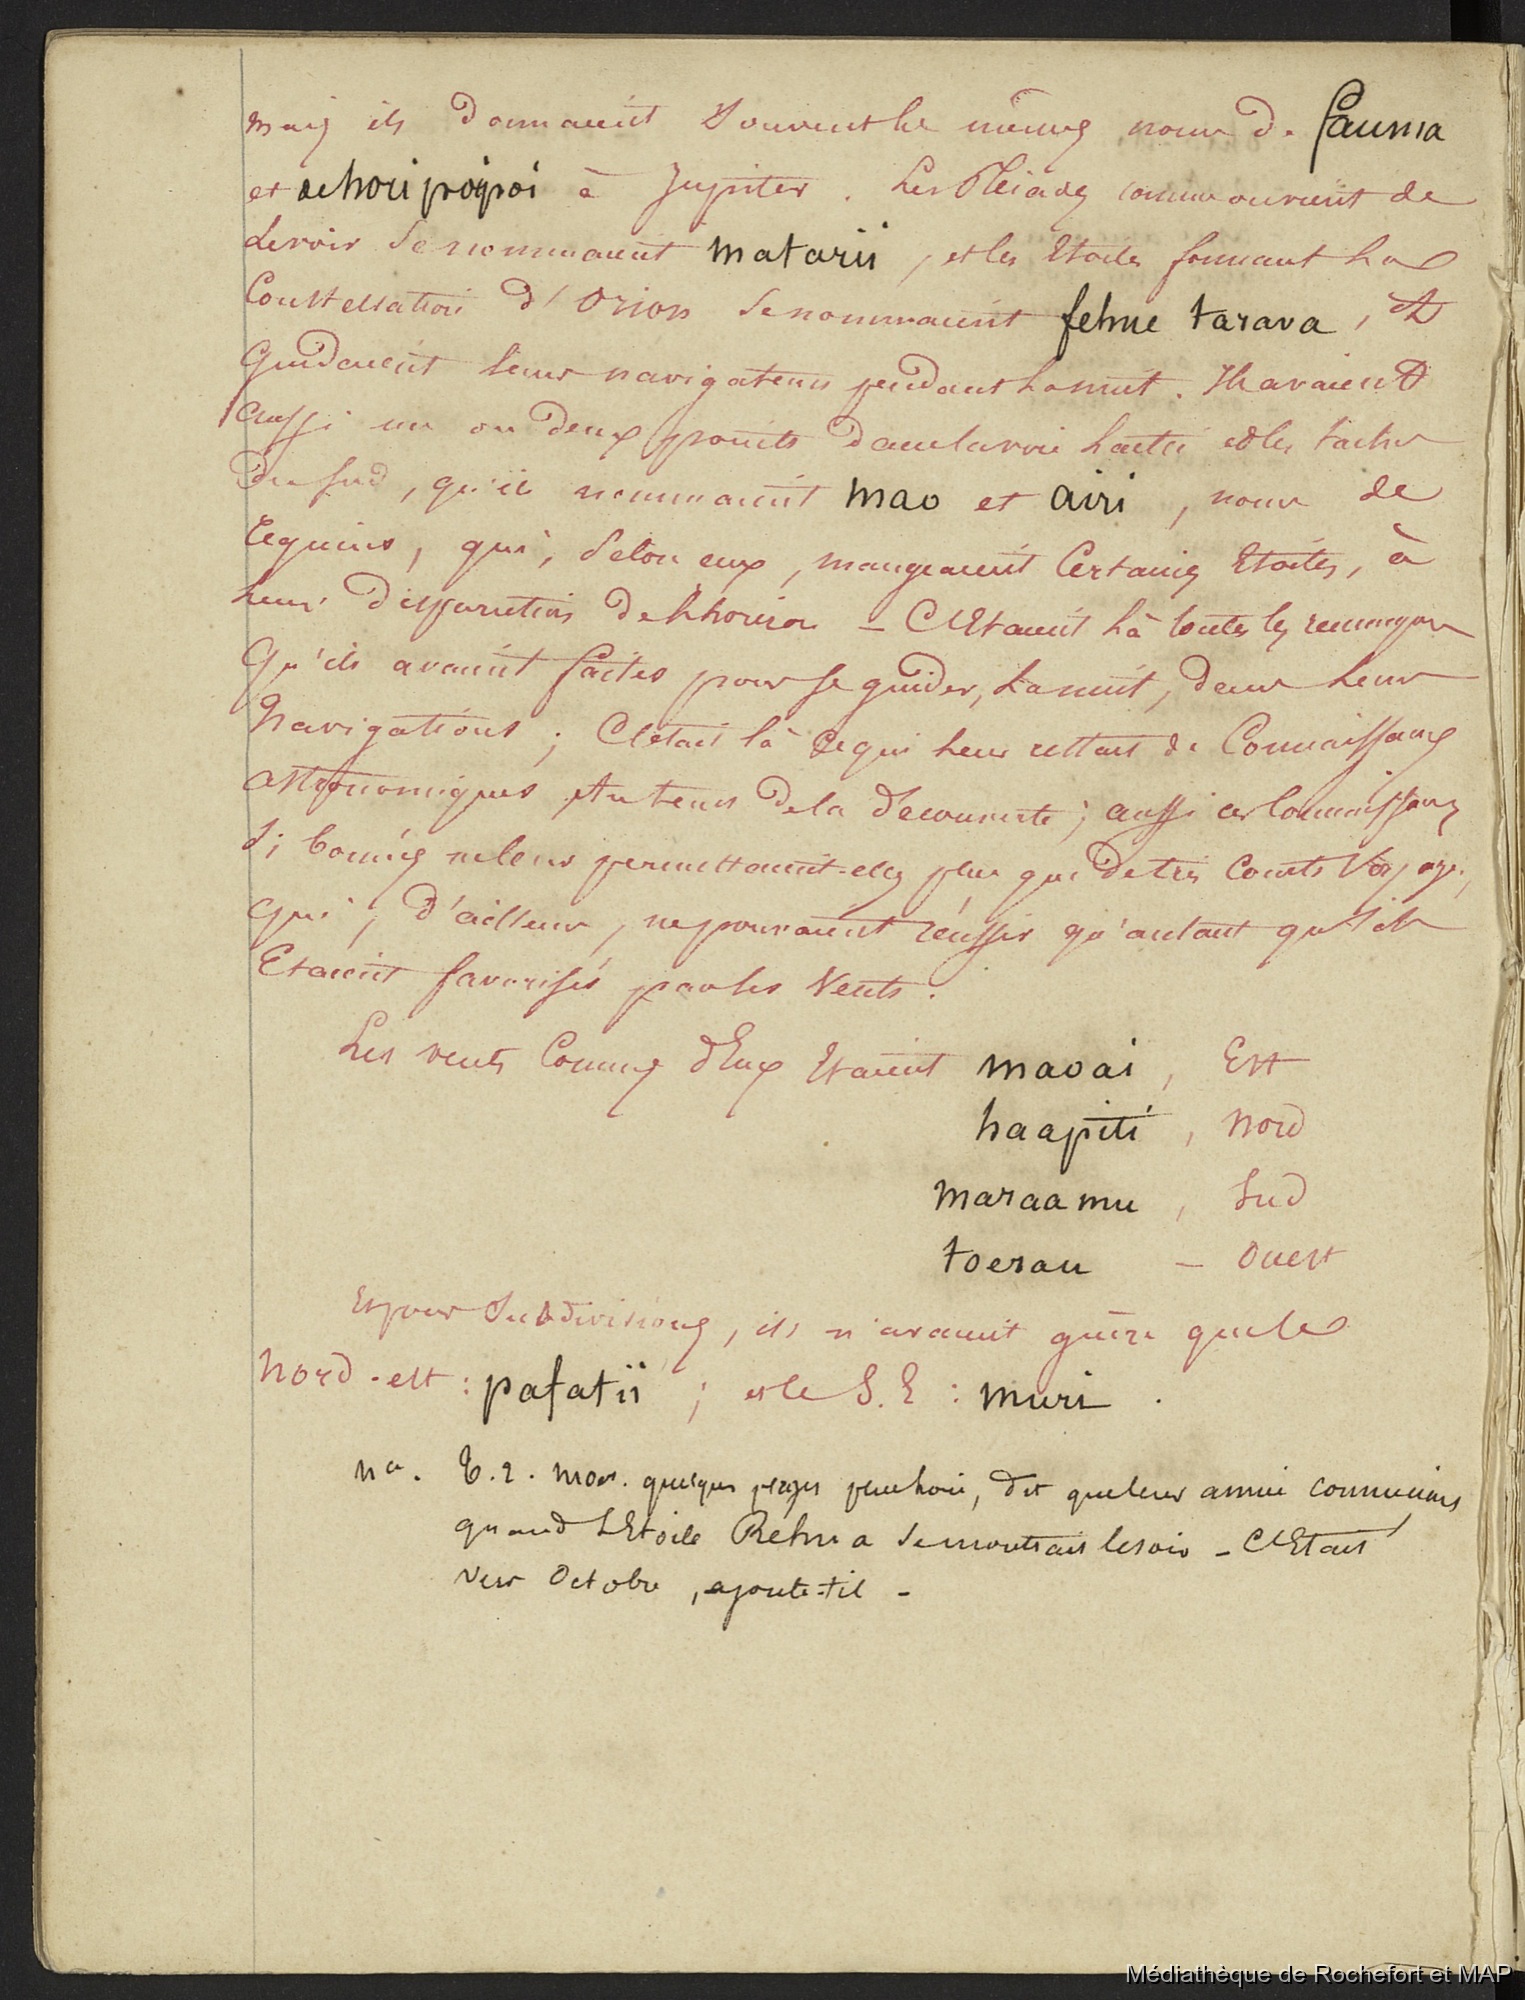 mais ils donnaient souvent les mêmes noms de fauma
et de horipoipoi à Jupiter. Les Pleiades comme on vient de
le voir se nommaient matarii, et les Etoiles formant la
Constellation d'Orion se nommaient fehue tarava, et
Guidaient leurs navigateurs pendant la nuit. Ils avaient
aussi un ou deux points dans la voie lactée et les taches
du sud, qu'ils nommaient mao et airi, noms de
requins, qui, selon eux, mangeaient Certaines Etoiles, à
leur disparution de l'horizon – C'Etaient là toutes les remarques
Qu'ils avaient faites pour se guider, la nuit, dans leurs
Navigations; C'etait là ce qui leur restait de Connaissances
astronomiques au tems de la découverte; aussi ces Connaissances
si bornées ne leur permettaient-elles plus que de très Courts Voyages,
qui, d'ailleurs, ne pouvaient réussir qu'autant qu'ils
Etaient favorisés par les Vents.
Les vents Connus d'Eux Etaient maoai, Est
haapiti, Nord
maraamu, Sud
toerau – Ouest
Et pour Subdivisions, ils n'avaient guère que le
Nord-est: pafatii; et le S.E: muri.
na. quelques pages plus loin, dit que leur année commençait
quand L'Etoile Rehua se montrait le soir – C'Etait
Vers Octobre, ajoute-t-il –
Médiathèque de Rochefort et MAP